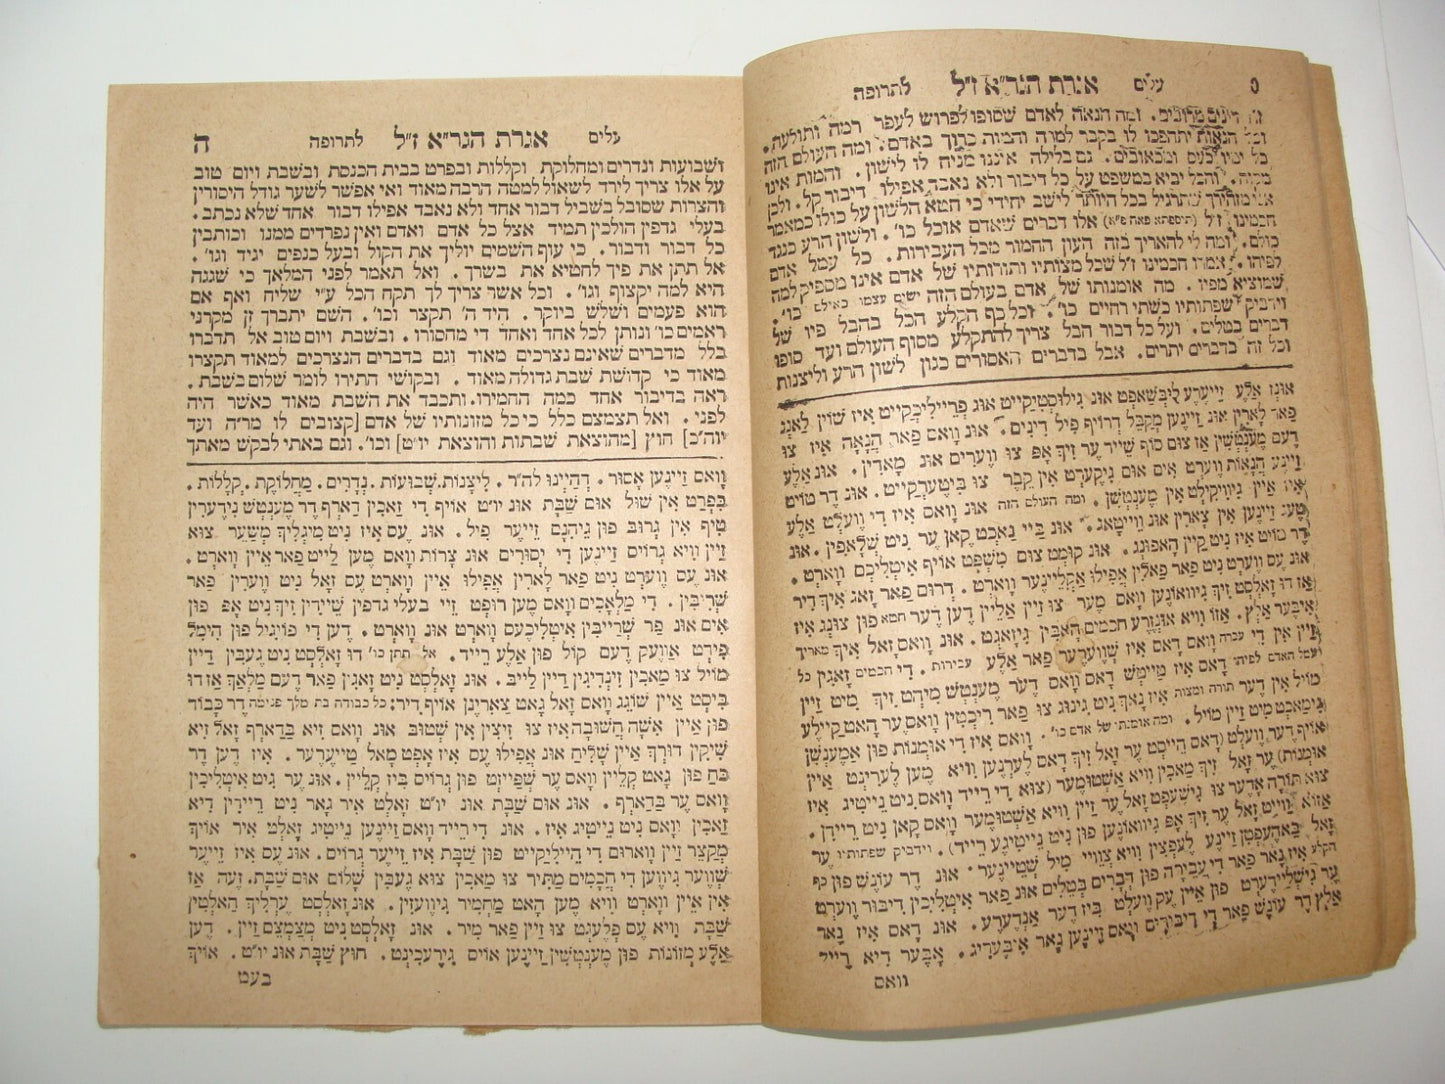 עלים אגרת הגר״א ז״ל לתרופה
דינים מרובים. ומה הנאה לאדם שסופו לפרוש לעפר רמה ותולעת.
הנאות יתהפכו לו בקבר למרה והמות כרוך באדם. ומה העולם הזה
כל ימיו כעס ומכאובים. גם בלילה איננו מניח לו לישון. והמות אינו
מקוה. והכל יביא במשפט על כל דיבור ולא נאבד אפילו דיבור קל. ולכן
אני מזהירך שתרגיל בכל היותר לישב יחידי כי חטא הלשון על כולו כמאמר
חכמינו ז״ל (תוספתא פאה פ״א) אלו דברים שאדם אוכל כו׳. ולשון הרע כנגד
כולם. ומה לי להאריך בזה העון החמור מכל העבירות. כל עמל אדם
לפיהו. אמרו חכמינו ז״ל שכל מצותיו ותורותיו של אדם אינו מספיק למה
שמוציא מפיו. מה אומנותו של אדם בעולם הזה ישים עצמו כאילם כו׳.
וידביק שפתותיו כשתי רחים כו׳. וכל כף הקלע הכל בהבל פיו של
דברים בטלים. ועל כל דבור הבל צריך להתקלע מסוף העולם ועד סופו
וכל זה בדברים יתרים. אבל בדברים האסורים כגון לשון הרע וליצנות
אונז אלע זייערע ליבשאפט אונ גילוסטיקייט אונ פרייליכקייט איז שוין לאנג
פאר לארין אונ זיינען מקבל דרויף פיל דינים. אונ וואס פאר הנאה איז צו
דעם מענטשין אז צום סוף שייר ער זיך אפ צו ווערים אונ מארין. אונ אלע
זיינע הנאות ווערט אים אום גיקערט אין קבר צו ביטערקייט. אונ דר טויט
איז איין גיוויקילט אין מענטשן. ומה העולם הזה אונ וואס איז די וועלט אלע
טעג זיינען אין צארין אונ ווייטאג. אונ ביי נאכט קאן ער ניט שלאפין. אונ
דר טויט איז ניט קיין האפונג. אונ קומט צום משפט אויף איטליכם ווארט.
אונ עס ווערט ניט פאר פאלין אפילו אקליינער ווארט. דרום פאר זאג איך דיר
אז דו זאלסט זיך גיוואונען וואס מער צו זיין אליין דען דער חטא פון צונג איז
איבער אלץ. אזו וויא אונזרע חכמים האבין גיזאגט. אונ וואס זאל איך מאריך
זיין אין די עבירה וואס דאס איז שווערער פאר אלע עבירות. די חכמים זאגין כל
עמל האדם לפיהו דאס איז טייטש דאס וואס דער מענטש מיהט זיך מיט זיין
מויל אין דער תורה ומצות איז נאך ניט גינוג צו פאר ריכטין וואס ער האט קיילע
גימאכט מיט זיין מויל. ומה אומנותו של אדם כו׳. וואס איז די אומנות פון אמענשן
אויף דער וועלט (דאס הייסט ער זאל זיך דאס לערנען וויא מען לערינט איין
אומנות) ער זאל זיך מאכין וויא אשטומער (צוא די רייד וואס ניט נייטיג איז
צוא תורה אדער צו גישעפט זאל ער זיין וויא אשטומער וואס קאן ניט ריידן.
אזוא ווייט זאל ער זיך אפ גיוואונען פון ניט נייטיגע רייד). וידביק שפתותיו ער
זאל באהעפטן זיינע לעפצין וויא צוויי מיל שטיינער. אונ דר עונש פון כף
הקלע איז נאר פאר די עבירה פון דברים בטלים אונ פאר איטליכין דיבור ווערט
ער גישליידערט פון איין עק וועלט ביז דער אנדערע. אונ דאס איז נאר
אלץ דר עונש פאר די דיבורים וואס זיינען נאר איבעריג. אבער דיא רייד
וואס
עלים אגרת הגר״א ז״ל לתרופה ה
ושבועות ונדרים ומחלוקת וקללות ובפרט בבית הכנסת ובשבת ויום טוב
על אלו צריך לירד לשאול למטה הרבה מאוד ואי אפשר לשער גודל היסורין
והצרות שסובל בשביל דבור אחד ולא נאבד אפילו דבור אחד שלא נכתב.
בעלי גדפין הולכין תמיד אצל כל אדם ואדם ואין נפרדים ממנו וכותבין
כל דבור ודבור. כי עוף השמים יוליך את הקול ובעל כנפים יגיד וגו׳.
אל תתן את פיך לחטיא את בשרך. ואל תאמר לפני המלאך כי שגגה
היא למה יקצוף וגו׳. וכל אשר צריך לך תקח הכל ע״י שליח ואף אם
הוא פעמים ושלש ביוקר. היד ה׳ תקצר וכו׳. השם יתברך זן מקרני
ראמים כו׳ ונותן לכל אחד ואחד די מחסורו. ובשבת ויום טוב אל תדברו
בלל מדברים שאינם נצרכים מאוד וגם בדברים הנצרכים למאוד תקצרו
מאוד כי קדושת שבת גדולה מאוד. ובקושי התירו לומר שלום בשבת.
ראה בדיבור אחד כמה החמירו. ותכבד את השבת מאוד כאשר היה
לפני. ואל תצמצם כלל כי כל מזונותיו של אדם [קצובים לו מר״ה ועד
יוה״כ] חוץ [מהוצאת שבתות והוצאת יו״ט] וכו׳. וגם באתי לבקש מאתך
וואס זיינען אסור. דהיינו לה״ר. ליצנות. שבועות. נדרים. מחלוקת. קללות.
בפרט אין שול אום שבת אונ יו״ט אויף די זאכין דארף דר מענטש נידערין
טיף אין גרוב פון גיהנם זייער פיל. אונ עס איז ניט מיגליך משער צוא
זיין וויא גרויס זיינען די יסורים אונ צרות וואס מען לייט פאר איין ווארט.
אונ עס ווערט ניט פאר לארין אפילו איין ווארט עס זאל ניט ווערין פאר
שריבין. די מלאכים וואס מען רופט זיי בעלי גדפין שיידין זיך ניט אפ פון
אים אונ פר שרייבין איטליכעס ווארט אונ ווארט. דען די פויגיל פון הימל
פירט אוועק דעם קול פון אלע רייד. אל תתן כו׳ דו זאלסט ניט געבין דיין
מויל צו מאכין זינדיגין דיין לייב. אונ זאלסט ניט זאגין פאר דעם מלאך אז דו
ביסט איין שוגג וואס זאל גאט צארינען אויף דיר. כל כבודה בת מלך פנימה דר כבוד
פון איין אשה חשובה איז צו זיצין אין שטוב אונ וואס זיא בדארף זאל זיא
שיקין דורך איין שליח אונ אפילו עס איז אפט מאל טייערער. איז דען דר
כח פון גאט קליין וואס ער שפייזט פון גרויס ביז קליין. אונ ער גיט איטליכין
וואס ער בדארף. אונ אום שבת אונ יו״ט זאלט איר גאר ניט ריידין דיא
זאכין וואס ניט נייטיג איז. אונ די רייד וואס זיינען נייטיג זאלט איר אויך
מקצר זיין ווארום די היילקייט פון שבת איז זייער גרויס. אונ עס איז זייער
שווער גיווען די חכמים מתיר צו מאכין צוא געבין שלום אום שבת. זעה אז
אין איין ווארט וויא מען האט מחמיר גיוועזין. אונ זאלסט ערליך האלטין
שבת וויא עס פלעגט צו זיין פאר מיר. אונ זאלסט ניט מצמצם זיין. דען
אלע מזונות פון מענטשין זיינען אויס גירעכינט. חוץ שבת אונ יו״ט. אויך
בעט